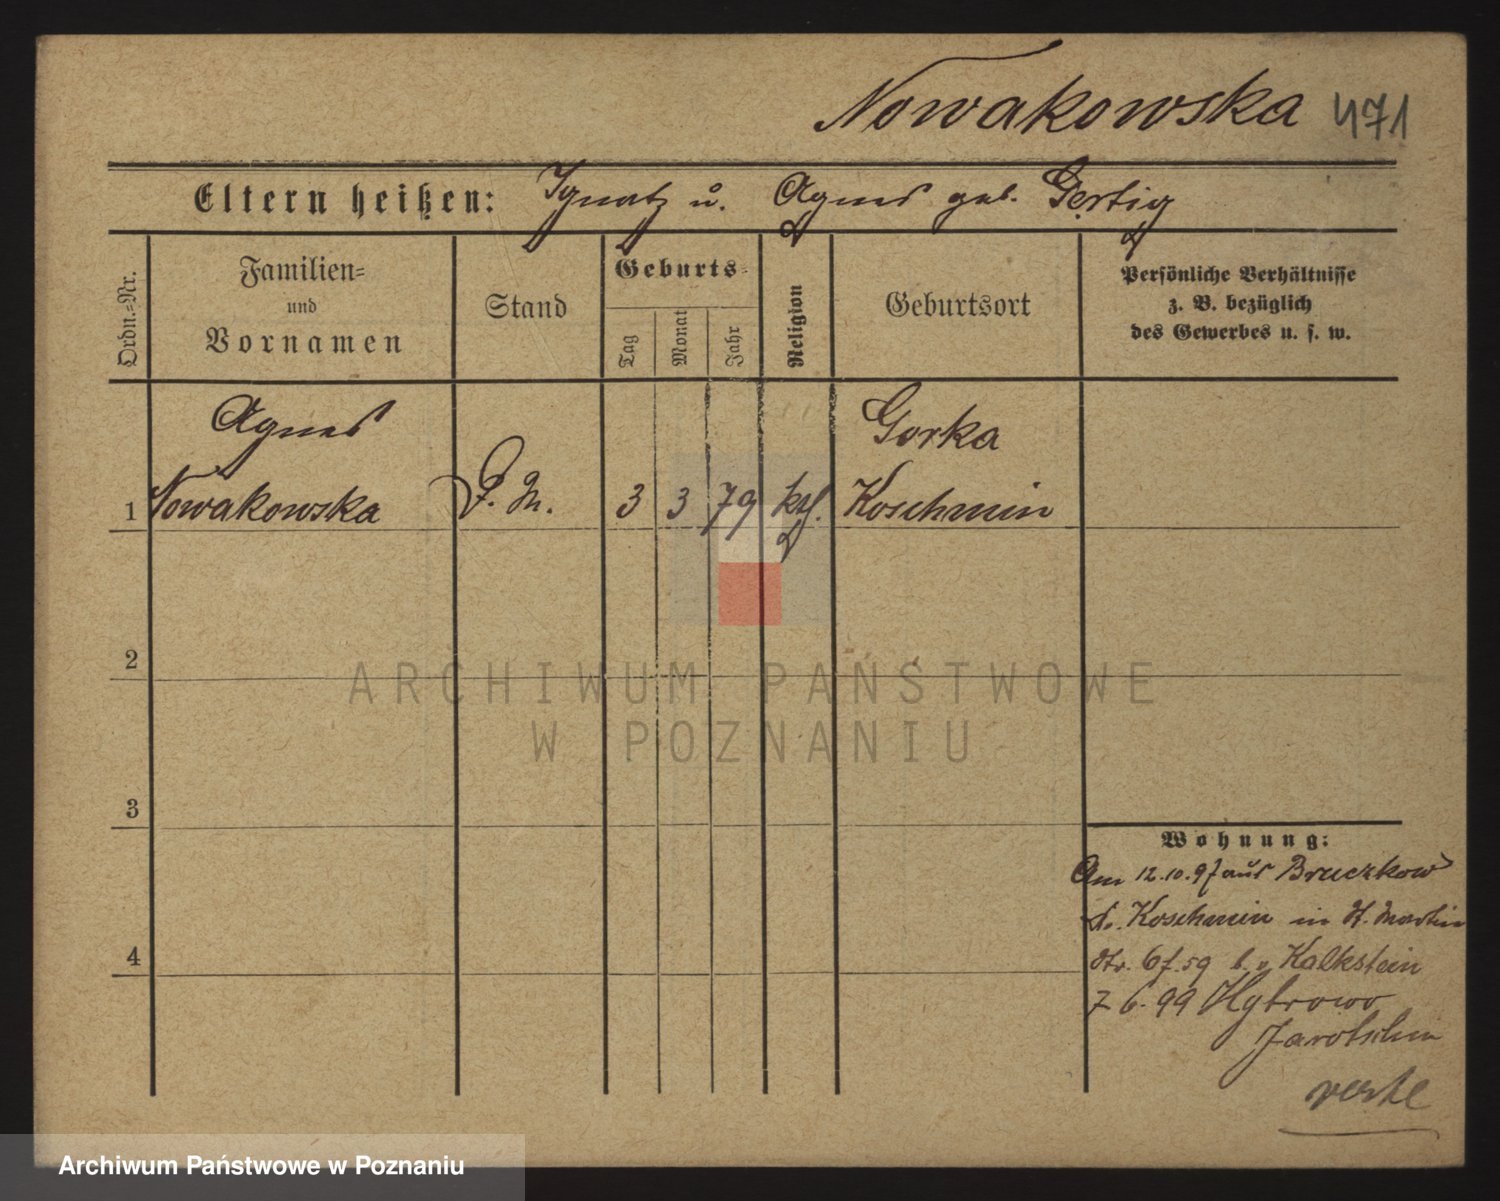 Nowakowska 471
Eltern heißen: Ignatz u. Agnes geb. Gertig
Ordn.-Nr.
Familien-
und
Vornamen
Stand
Geburts-
Tag
Monat
Jahr
Religion
Geburtsort
Persönliche Verhältnisse
z. B. bezüglich
des Gewerbes u. s. w.
Agnes Gorka
1 Nowakowska D. M. 3 3 79 kth. Koschmin
2
ARCHIWUM PAŃSTWOWE
W POZNANIU
3
Wohnung:
Am 12.10.97 aus Bruczkow
Koschmin in St. Martin
Str. b. v. Kalkstein
7 6. 99
Jarotschin
4
verte
Archiwum Państwowe w Poznaniu